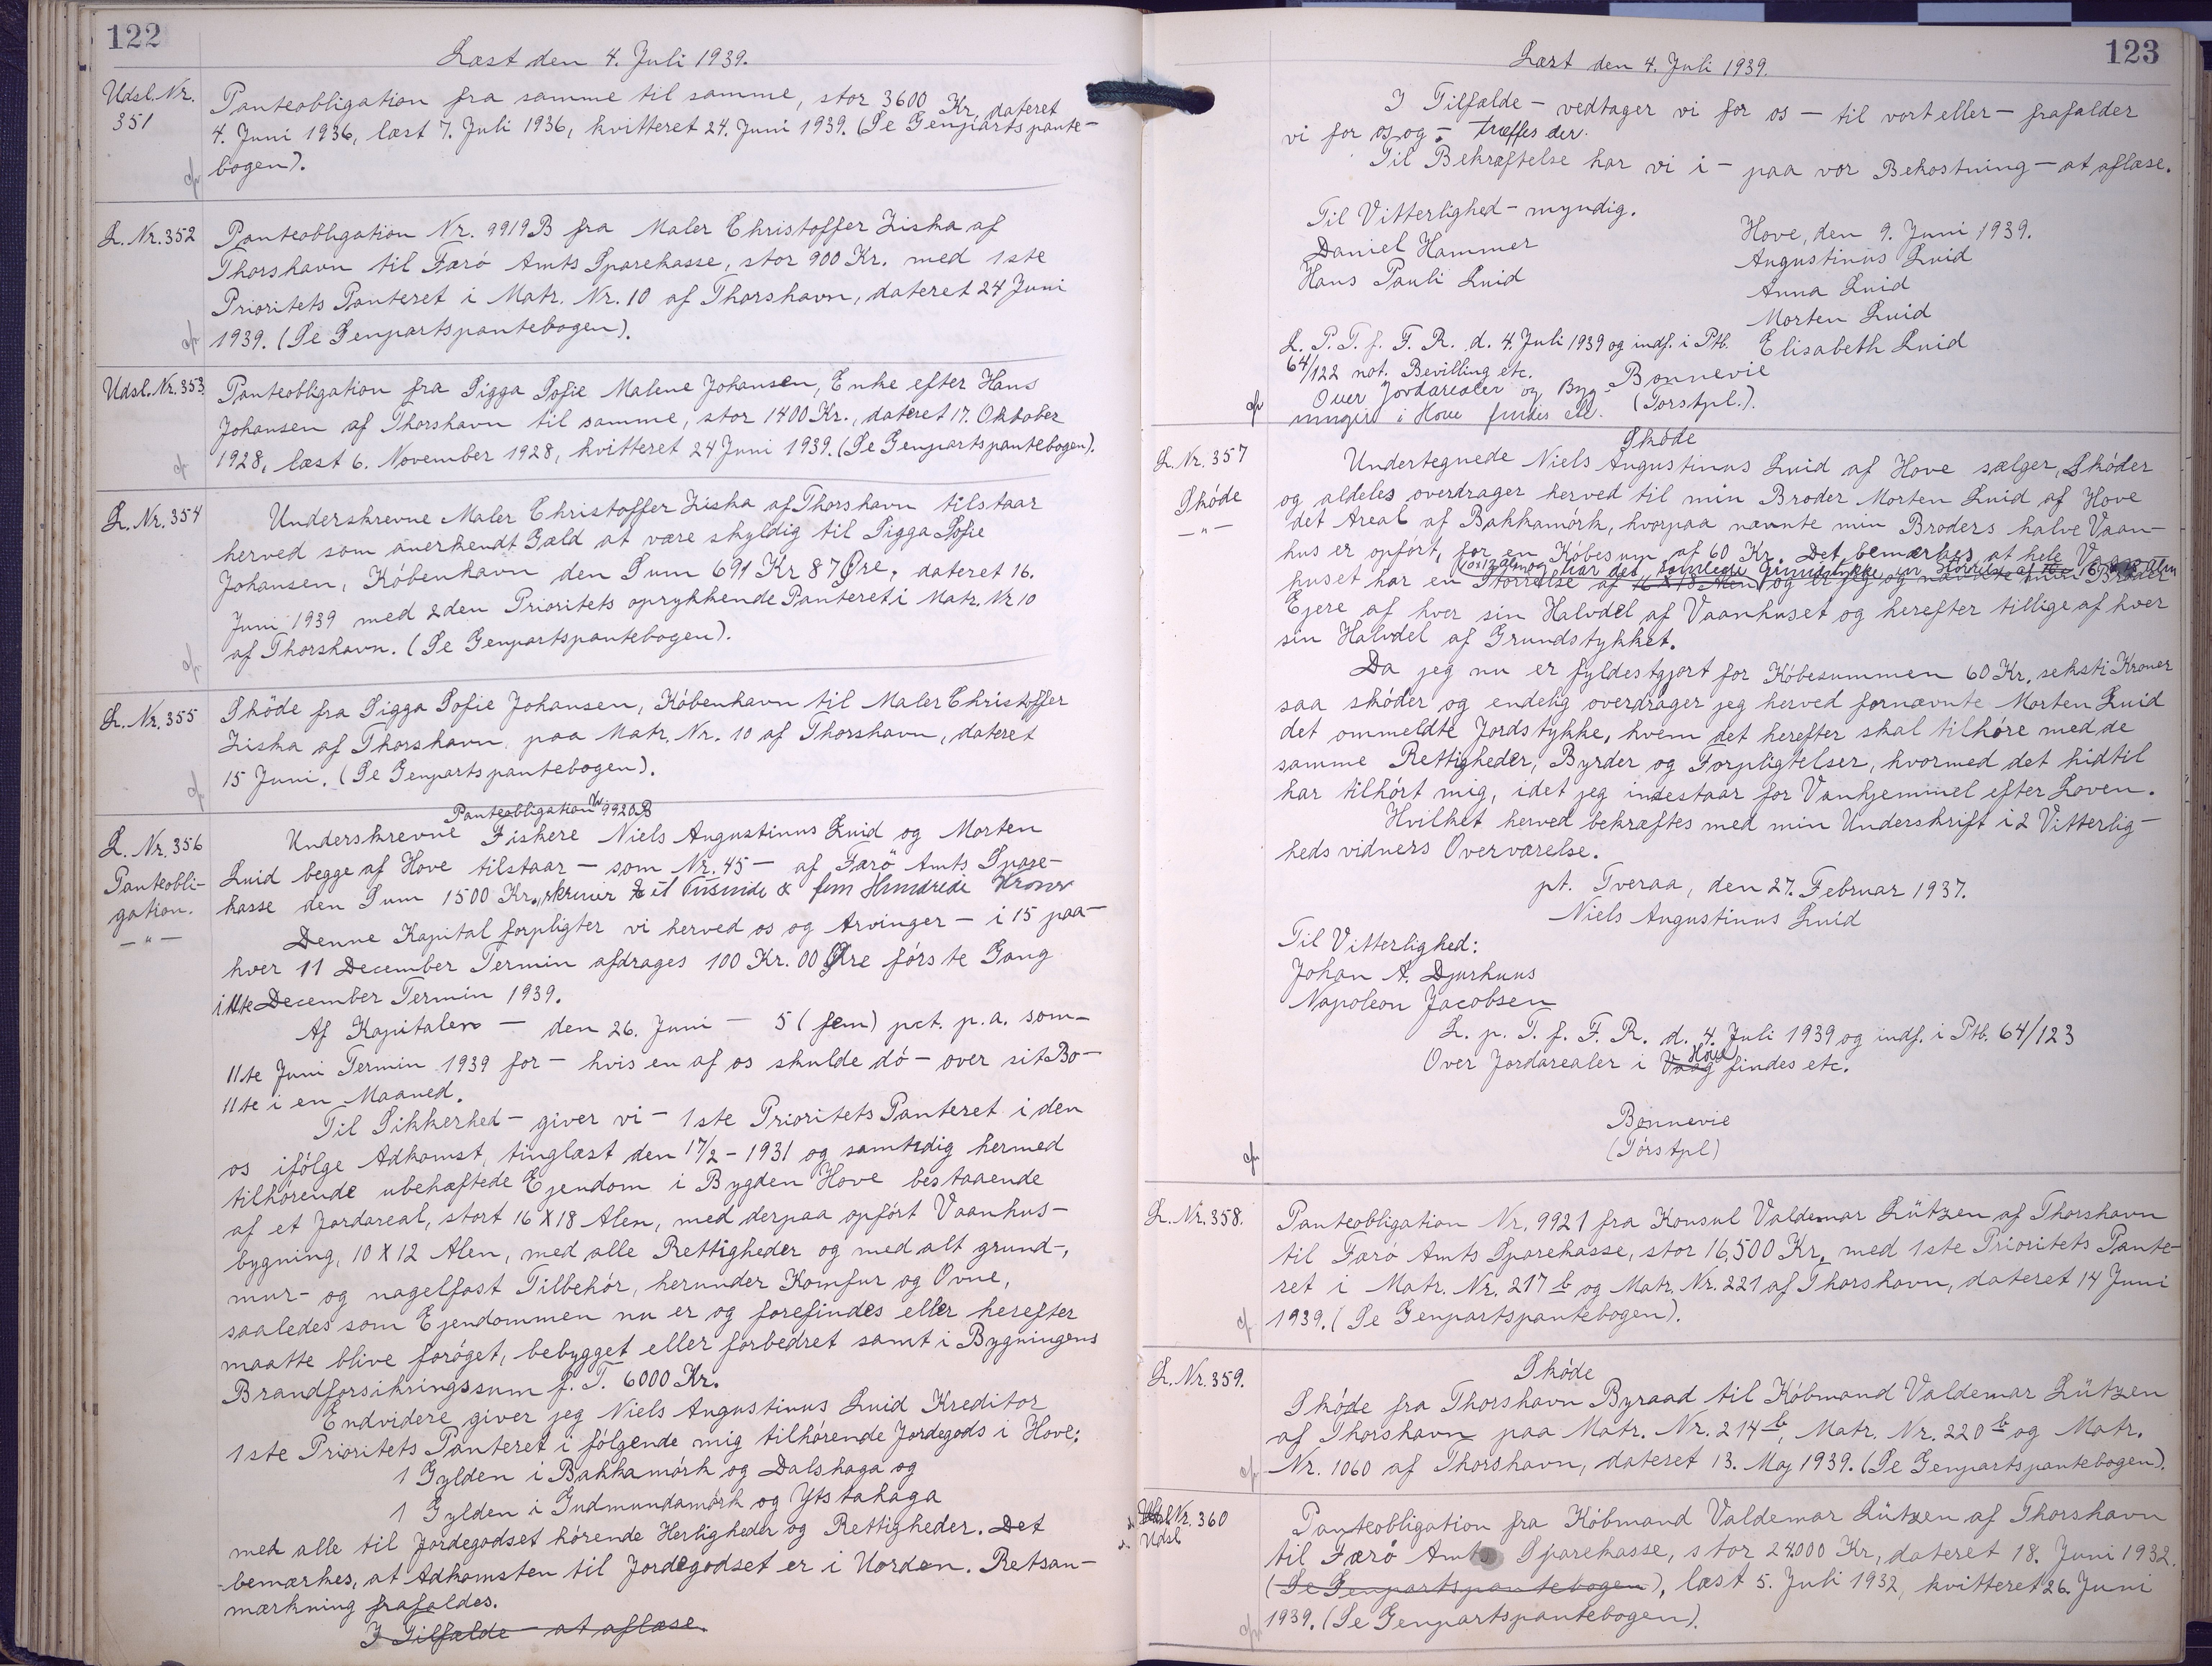 122
Læst den 4. Juli 1939.
Udsl. Nr.
351
Panteobligation fra samme til samme, stor 3600 Kr, dateret
4. Juni 1936, læst 7. Juli 1936, kvitteret 24. Juni 1939. (Se Genpartspante-
bogen).
L. Nr. 352
Panteobligation Nr. 9919B fra Maler Christoffer Ziska af
Thorshavn til Færö Amts Sparekasse, stor 900 Kr. med 1ste
Prioritets Panteret i Matr. Nr. 10 af Thorshavn, dateret 24 Juni
1939. (Se Genpartspantebogen).
Udsl. Nr. 353
Panteobligation fra Sigga Sofie Malene Johansen, Enke efter Hans
Johansen af Thorshavn til samme, stor 1400 Kr., dateret 17. Oktober
1928, læst 6. November 1928, kvitteret 24 Juni 1939. (Se Genpartspantebogen).
L. Nr. 354
Underskrevne Maler Christoffer Ziska af Thorshavn tilstaar
herved som anerkendt Gæld at være skyldig til Sigga Sofie
Johansen, København den Sum 691 Kr 87 Øre, dateret 16.
Juni 1939 med 2den Prioritets oprykkende Panteret i Matr. Nr 10
af Thorshavn. (Se Genpartspantebogen).
L. Nr. 355
Skøde fra Sigga Sofie Johansen, København til Maler Christoffer
Ziska af Thorshavn paa Matr. Nr. 10 af Thorshavn, dateret
15 Juni. (Se Genpartspantebogen).
Panteobligation Nr 9920B
L. Nr. 356
Panteobli-
gation.
— " —
Underskrevne Fiskere Niels Augustinus Luid og Morten
Luid begge af Hove tilstaar — som Nr. 45 — af Færö Amts Spare-
kasse den Sum 1500 Kr., skriver et Tusinde & fem Hundrede Kroner
Denne Kapital forpligter vi herved os og Arvinger — i 15 paa-
hver 11 December Termin afdrages 100 Kr. 00 Øre første Gang
i 11te December Termin 1939.
Af Kapitalen — den 26. Juni — 5 (fem) pct. p.a. som-
11te Juni Termin 1939 for — hvis en af os skulde dö — over sit Bo-
11te i en Maaned.
Til Sikkerhed — giver vi — 1ste Prioritets Panteret i den
os ifölge Adkomst, tinglæst den 17/2 - 1931 og samtidig hermed
tilhörende ubehæftede Ejendom i Bygden Hove bestaaende
af et Jordareal, stort 16 X 18 Alen, med derpaa opfört Vaanhus-
bygning, 10 X 12 Alen, med alle Rettigheder og med alt grund-,
mur- og nagelfast Tilbehör, herunder Komfur og Ovne,
saaledes som Ejendommen nu er og forefindes eller herefter
maatte blive foröget, bebygget eller forbedret samt i Bygningens
Brandforsikringssum f. T. 6000 Kr.
Endvidere giver jeg Niels Augustinus Luid Kreditor
1ste Prioritets Panteret i fölgende mig tilhörende Jordegods i Hove:
1 Gylden i Bakkamörk og Dalshaga og
1 Gylden i Gudmundamörk og Ytstahaga
med alle til Jordegodset hörende Herligheder og Rettigheder. Det
bemærkes, at Adkomsten til Jordegodset er i Uorden. Retsan-
mærkning frafaldes.
I Tilfælde — at aflæse.
123
Læst den 4. Juli 1939.
I Tilfælde — vedtager vi for os — til vort eller — frafalder
vi for os og — træffes der.
Til Bekræftelse har vi i — paa vor Bekostning — at aflæse.
Til Vitterlighed — myndig.
Daniel Hammer
Hans Pauli Luid
Hove, den 9. Juni 1939.
Augustinus Luid
Anna Luid
Morten Luid
Elisabeth Luid
L. P. T. f. F. R. d. 4. Juli 1939 og indf. i Ptb.
64/122 not. Bevilling etc.
Over Jordarealer og Byg-
ninger i Hove findes etc.
Bonnevie
(Torstpl.).
Skøde
L. Nr. 357
Skøde
— " —
Undertegnede Niels Augustinus Luid af Hove sælger, skøder
og aldeles overdrager herved til min Broder Morten Luid af Hove
det Areal af Bakkamörk, hvorpaa nævnte min Broders halve Vaan-
hus er opfört, for en Köbesum af 60 Kr. Det bemærkes at hele Vaan-
huset har en Störrelse af 16 X 18 Alen og er jeg og nævnte min Broder
Ejere af hver sin Halvdel af Vaanhuset og herefter tillige af hver
sin Halvdel af Grundstykket.
Da jeg nu er fyldestgjort for Köbesummen 60 Kr, seksti Kroner
saa skøder og endelig overdrager jeg herved fornævnte Morten Luid
det ommeldte Jordstykke, hvem det herefter skal tilhöre med de
samme Rettigheder, Byrder og Forpligtelser, hvormed det hidtil
har tilhört mig, idet jeg indestaar for Vanhjemmel efter Loven.
Hvilket herved bekræftes med min Underskrift i 2 Vitterlig-
heds vidners Overværelse.
pt. Tveraa, den 27. Februar 1937.
Niels Augustinus Luid
Til Vitterlighed:
Johan A. Djurhuus
Napoleon Jacobsen
L. p. T. f. F. R. d. 4. Juli 1939 og indf. i Ptb. 64/123
Over Jordarealer i Vaag Hove findes etc.
Bonnevie
(Törstpl)
L. Nr. 358.
Panteobligation Nr. 9921 fra Konsul Valdemar Lützen af Thorshavn
til Færö Amts Sparekasse, stor 16,500 Kr, med 1ste Prioritets Pante-
ret i Matr. Nr. 217 b og Matr. Nr. 221 af Thorshavn, dateret 14 Juni
1939. (Se Genpartspantebogen).
L. Nr. 359.
Skøde
Skøde fra Thorshavn Byraad til Köbmand Valdemar Lützen
af Thorshavn paa Matr. Nr. 214 b, Matr. Nr. 220 b og Matr.
Nr. 1060 af Thorshavn, dateret 13. Maj 1939. (Se Genpartspantebogen).
Nr. 360
Udsl
Panteobligation fra Köbmand Valdemar Lützen af Thorshavn
til Færö Amts Sparekasse, stor 24000 Kr, dateret 18. Juni 1932.
(Se Genpartspantebogen), læst 5. Juli 1932, kvitteret 26. Juni
1939. (Se Genpartspantebogen).